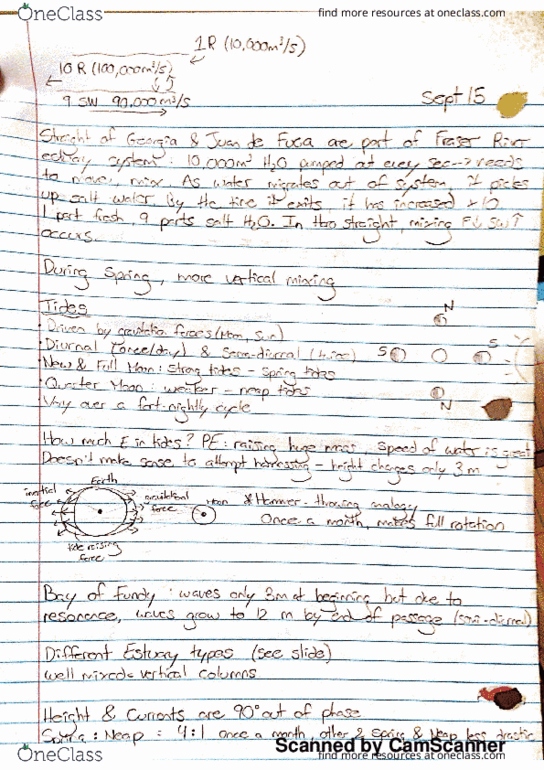 OneClass
find more resources at oneclass.com
1R (10,000m³/s)
10 R (100,000m³/s)
9 SW 90,000m³/s
Sept 15
Straight of Georgia & Juan de Fuca are part of Fraser River
estuary system: 10,000m³ H₂O pumped at every sec → needs
to move, mix. As water migrates out of system, it picks
up salt water. By the time it exits, it has increased x10
1 part fresh, 9 parts salt H₂O. In the straight, mixing F↓ SW↑
occurs.
During Spring, more vertical mixing
Tides
Driven by gravitation forces (Moon, Sun)
Diurnal (once/day) & Semi-diurnal (twice)
New & Full Moon: strong tides - spring tides
Quarter Moon: weaker - neap tides
Vary over a fort-nightly cycle
N
S
S
N
How much E in tides? PE: raising huge mass, speed of water is great
Doesn't make sense to attempt harnessing - height changes only 3m
Earth
inertial force
gravitational force
Moon
tide raising force
* Hammer-throwing analogy
Once a month, makes full rotation
Bay of Fundy: waves only 3m at beginning but due to
resonance, waves grow to 12 m by end of passage (semi-diurnal)
Different Estuary types (see slide)
well mixed= vertical columns
Height & Currents are 90° out of phase
Spring: Neap = 4:1 once a month, other 2 Spring & Neap less drastic
Scanned by CamScanner
OneClass
find more resources at oneclass.com